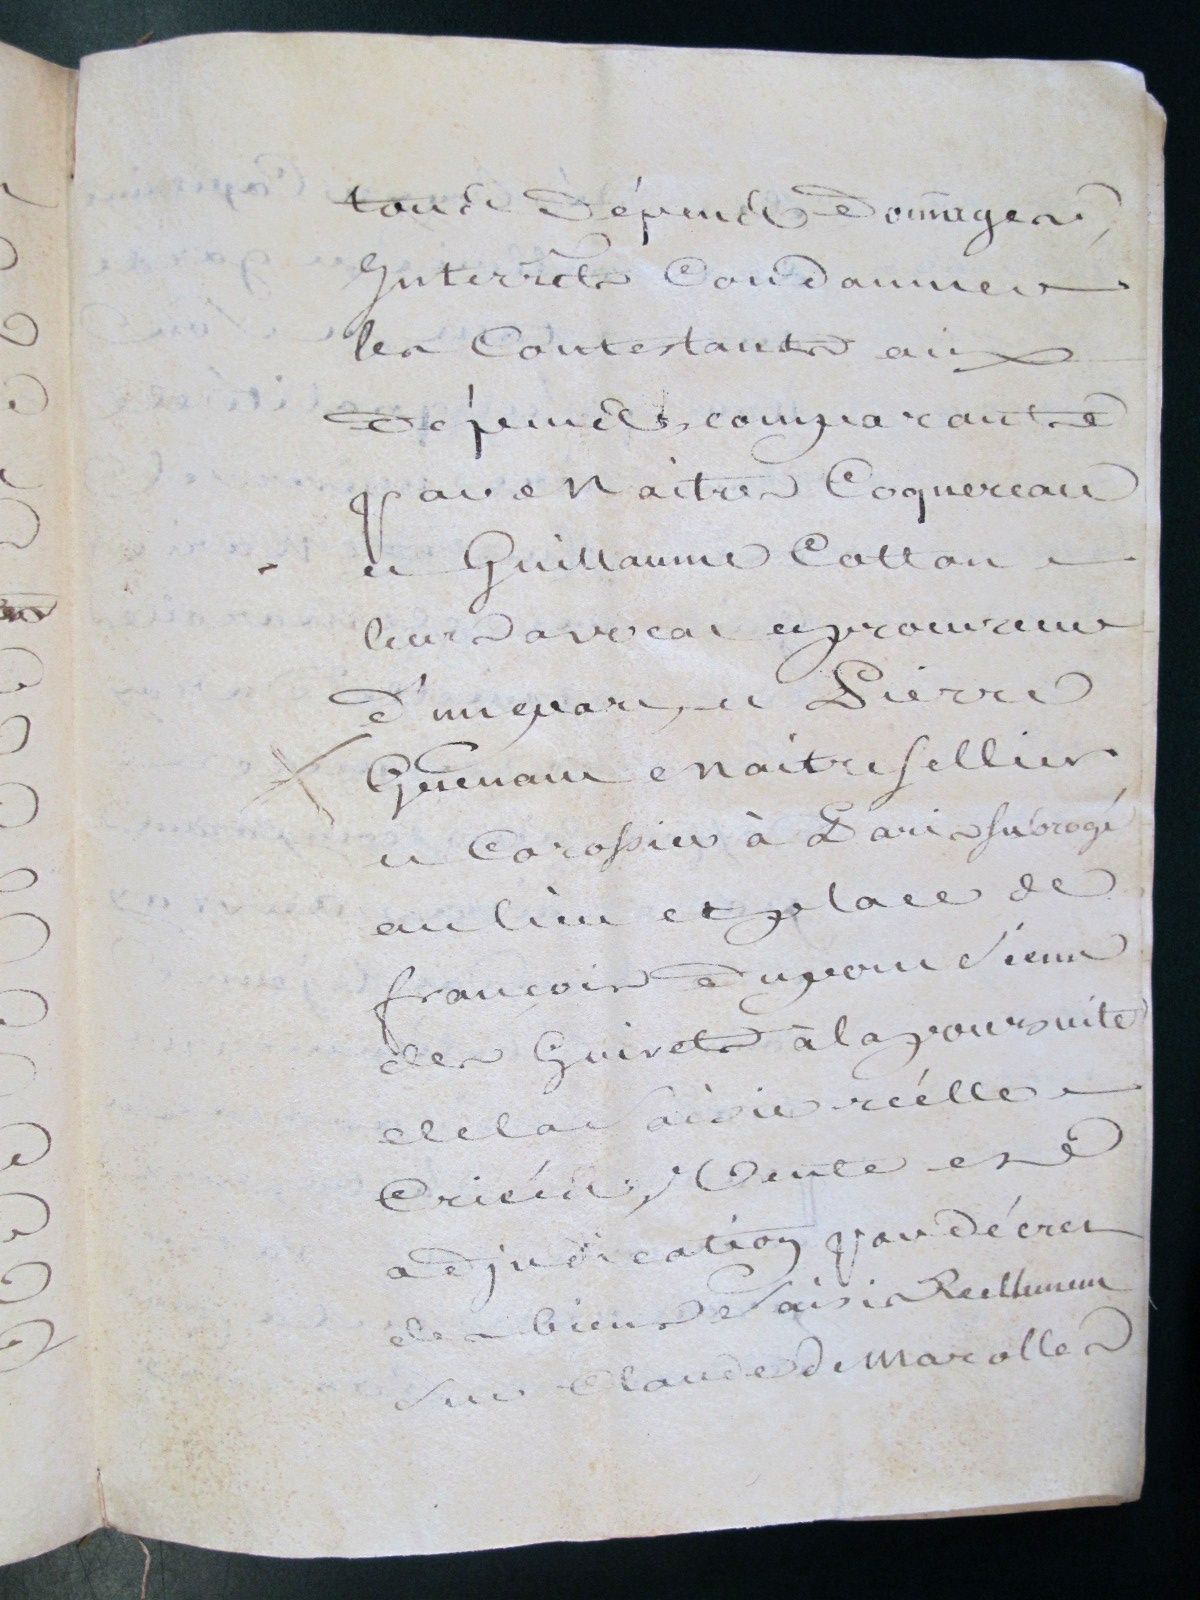 tous dépends domages,
Interrêts Condamner
les Contestants aux
dépends, comparants
par Maitres Coquereau
et Guillaume Cottan
leurs avocat et procureur
d'une part, et Pierre
Guenaut Maitre Sellier
et Carossier à Paris subrogé
au lieu et place de
françois Dupont Sieur
des Guirets à la poursuite
de la Saisie réélle
Criées, Vente et
adjudication par décret
des biens Saisis Reellement
Sur Claude de Marolles